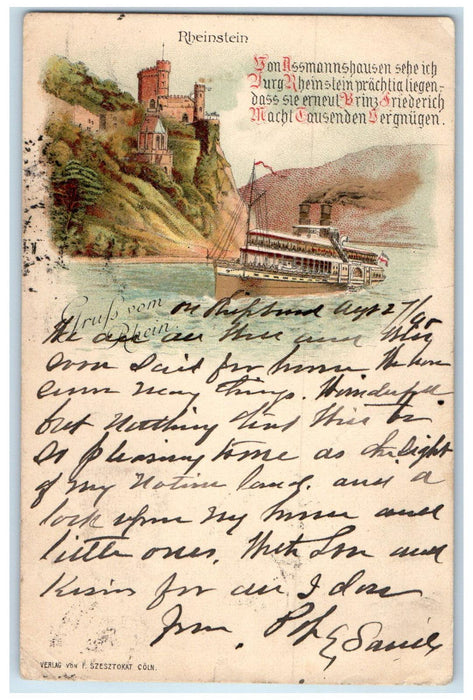 Rheinstein
Von Assmannshausen sehe ich
Burg Rheinstein prächtig liegen,
dass sie erneut Prinz Friederich
Macht Tausenden Vergnügen.
Gruß vom
Rhein.
on
We are all well and
soon sail for home. We have
seen many things. Wonderful
but nothing that will be
as pleasing to me as the light
of my native land. and a
look upon my home and
little ones. With Love and
Kisses for all I close
from
VERLAG VON F. SZESZTOKAT CÖLN.